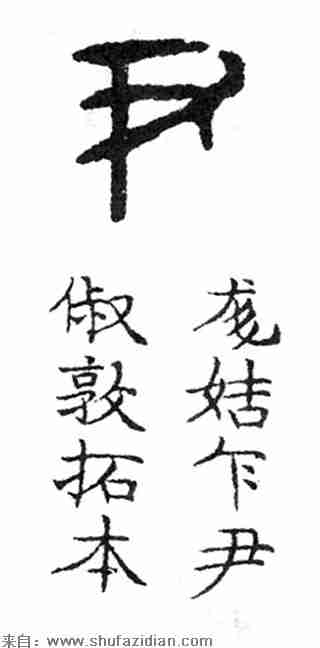 尨姞乍尹
俶敦拓本
来自：www.shufazidian.com